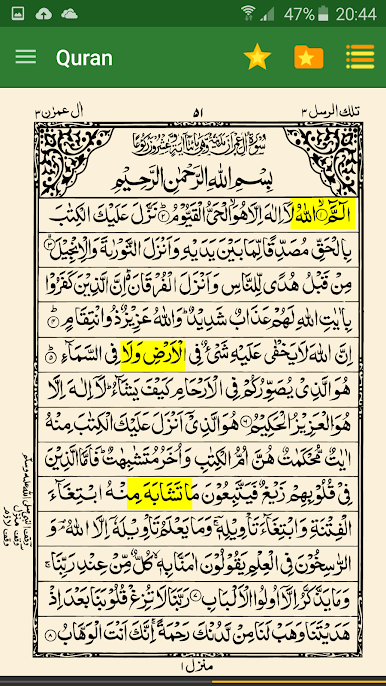 47% 20:44
Quran
تلك الرسل ٣ ٥١ ال عمرٰن ٣
بِسْمِ اللّٰهِ الرَّحْمٰنِ الرَّحِيْمِ
الٓمَّٓ ۙ‏﴿۱﴾ اللّٰهُ لَاۤ اِلٰهَ اِلَّا هُوَ الْحَىُّ الْقَيُّوْمُ ؕ‏﴿۲﴾ نَزَّلَ عَلَيْكَ الْكِتٰبَ
بِالْحَقِّ مُصَدِّقًا لِّمَا بَيْنَ يَدَيْهِ وَاَنْزَلَ التَّوْرٰٮةَ وَالْاِنْجِيْلَ ۙ‏﴿۳﴾
مِنْ قَبْلُ هُدًى لِّلنَّاسِ وَاَنْزَلَ الْفُرْقَانَ ؕ اِنَّ الَّذِيْنَ كَفَرُوْا
بِاٰيٰتِ اللّٰهِ لَهُمْ عَذَابٌ شَدِيْدٌ ؕ وَاللّٰهُ عَزِيْزٌ ذُو انْتِقَامٍ ؕ‏﴿۴﴾
اِنَّ اللّٰهَ لَا يَخْفٰى عَلَيْهِ شَىْءٌ فِى الْاَرْضِ وَلَا فِى السَّمَآءِ ؕ‏﴿۵﴾
هُوَ الَّذِىْ يُصَوِّرُكُمْ فِى الْاَرْحَامِ كَيْفَ يَشَآءُ ؕ لَاۤ اِلٰهَ اِلَّا
هُوَ الْعَزِيْزُ الْحَكِيْمُ ‏﴿۶﴾ هُوَ الَّذِىْۤ اَنْزَلَ عَلَيْكَ الْكِتٰبَ مِنْهُ
اٰيٰتٌ مُّحْكَمٰتٌ هُنَّ اُمُّ الْكِتٰبِ وَاُخَرُ مُتَشٰبِهٰتٌ ؕ فَاَمَّا الَّذِيْنَ
فِىْ قُلُوْبِهِمْ زَيْغٌ فَيَتَّبِعُوْنَ مَا تَشَابَهَ مِنْهُ ابْتِغَآءَ
الْفِتْنَةِ وَابْتِغَآءَ تَاْوِيْلِهٖ ۚ وَمَا يَعْلَمُ تَاْوِيْلَهٗۤ اِلَّا اللّٰهُ ۘ وَ
الرّٰسِخُوْنَ فِى الْعِلْمِ يَقُوْلُوْنَ اٰمَنَّا بِهٖ ۙ كُلٌّ مِّنْ عِنْدِ رَبِّنَا ۚ
وَمَا يَذَّكَّرُ اِلَّاۤ اُولُوا الْاَلْبَابِ ‏﴿۷﴾ رَبَّنَا لَا تُزِغْ قُلُوْبَنَا بَعْدَ اِذْ
هَدَيْتَنَا وَهَبْ لَنَا مِنْ لَّدُنْكَ رَحْمَةً ۚ اِنَّكَ اَنْتَ الْوَهَّابُ ‏﴿۸﴾
منزل ١